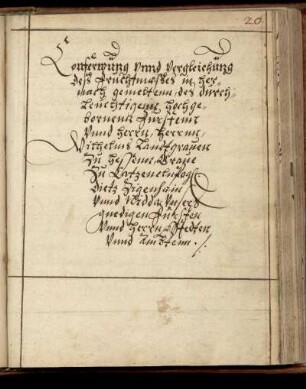 20
Conferirung vnnd Vergleichung
deß Fruchtmaßes in her-
nach gemelten, des durch-
leuchtigenn, Hochge-
bornenn Fürstenn
vnnd Herrn, Herrnn
Wilhelms Landtgrauen
Zu Hessenn, Graue
Zu Catzenelnpog.
Dietz Zigenhain
vnnd Nidda, Vnsers
gnedigen Fürsten
vnnd Herrn Stedten
vnnd Ambtenn.